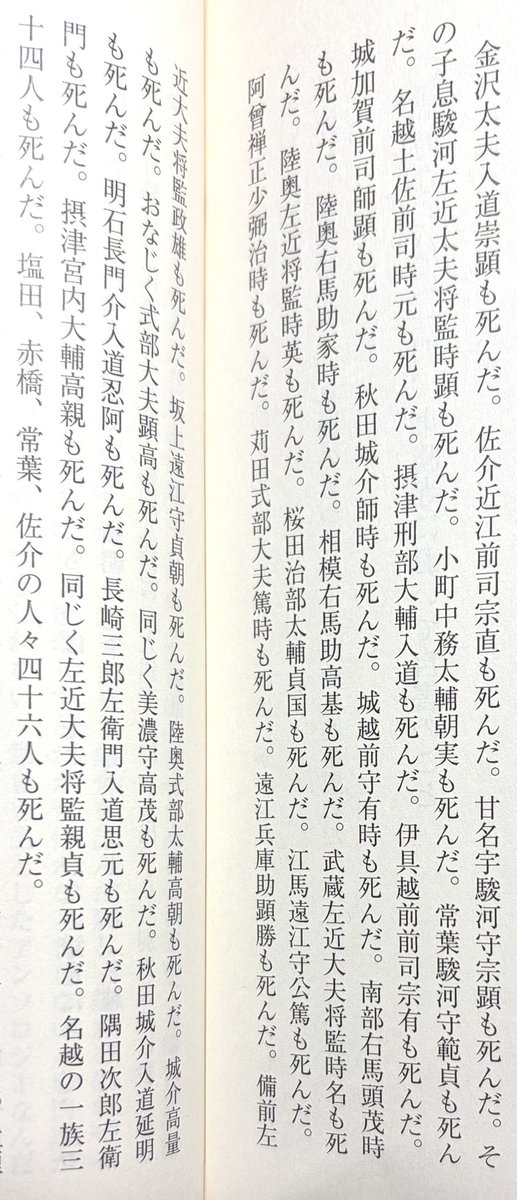 金沢太夫入道崇顕も死んだ。佐介近江前司宗直も死んだ。甘名宇駿河守宗顕も死んだ。そ
の子息駿河左近太夫将監時顕も死んだ。小町中務太輔朝実も死んだ。常葉駿河守範貞も死ん
だ。名越土佐前司時元も死んだ。摂津刑部大輔入道も死んだ。伊具越前前司宗有も死んだ。
城加賀前司師顕も死んだ。秋田城介師時も死んだ。城越前守有時も死んだ。南部右馬頭茂時
も死んだ。陸奥右馬助家時も死んだ。相模右馬助高基も死んだ。武蔵左近大夫将監時名も死
んだ。陸奥左近将監時英も死んだ。桜田治部太輔貞国も死んだ。江馬遠江守公篤も死んだ。
阿曾禅正少弼治時も死んだ。苅田式部大夫篤時も死んだ。遠江兵庫助顕勝も死んだ。備前左
近大夫将監政雄も死んだ。坂上遠江守貞朝も死んだ。陸奥式部太輔高朝も死んだ。城介高量
も死んだ。おなじく式部大夫顕高も死んだ。同じく美濃守高茂も死んだ。秋田城介入道延明
も死んだ。明石長門介入道忍阿も死んだ。長崎三郎左衛門入道思元も死んだ。隅田次郎左衛
門も死んだ。摂津宮内大輔高親も死んだ。同じく左近大夫将監親貞も死んだ。名越の一族三
十四人も死んだ。塩田、赤橋、常葉、佐介の人々四十六人も死んだ。